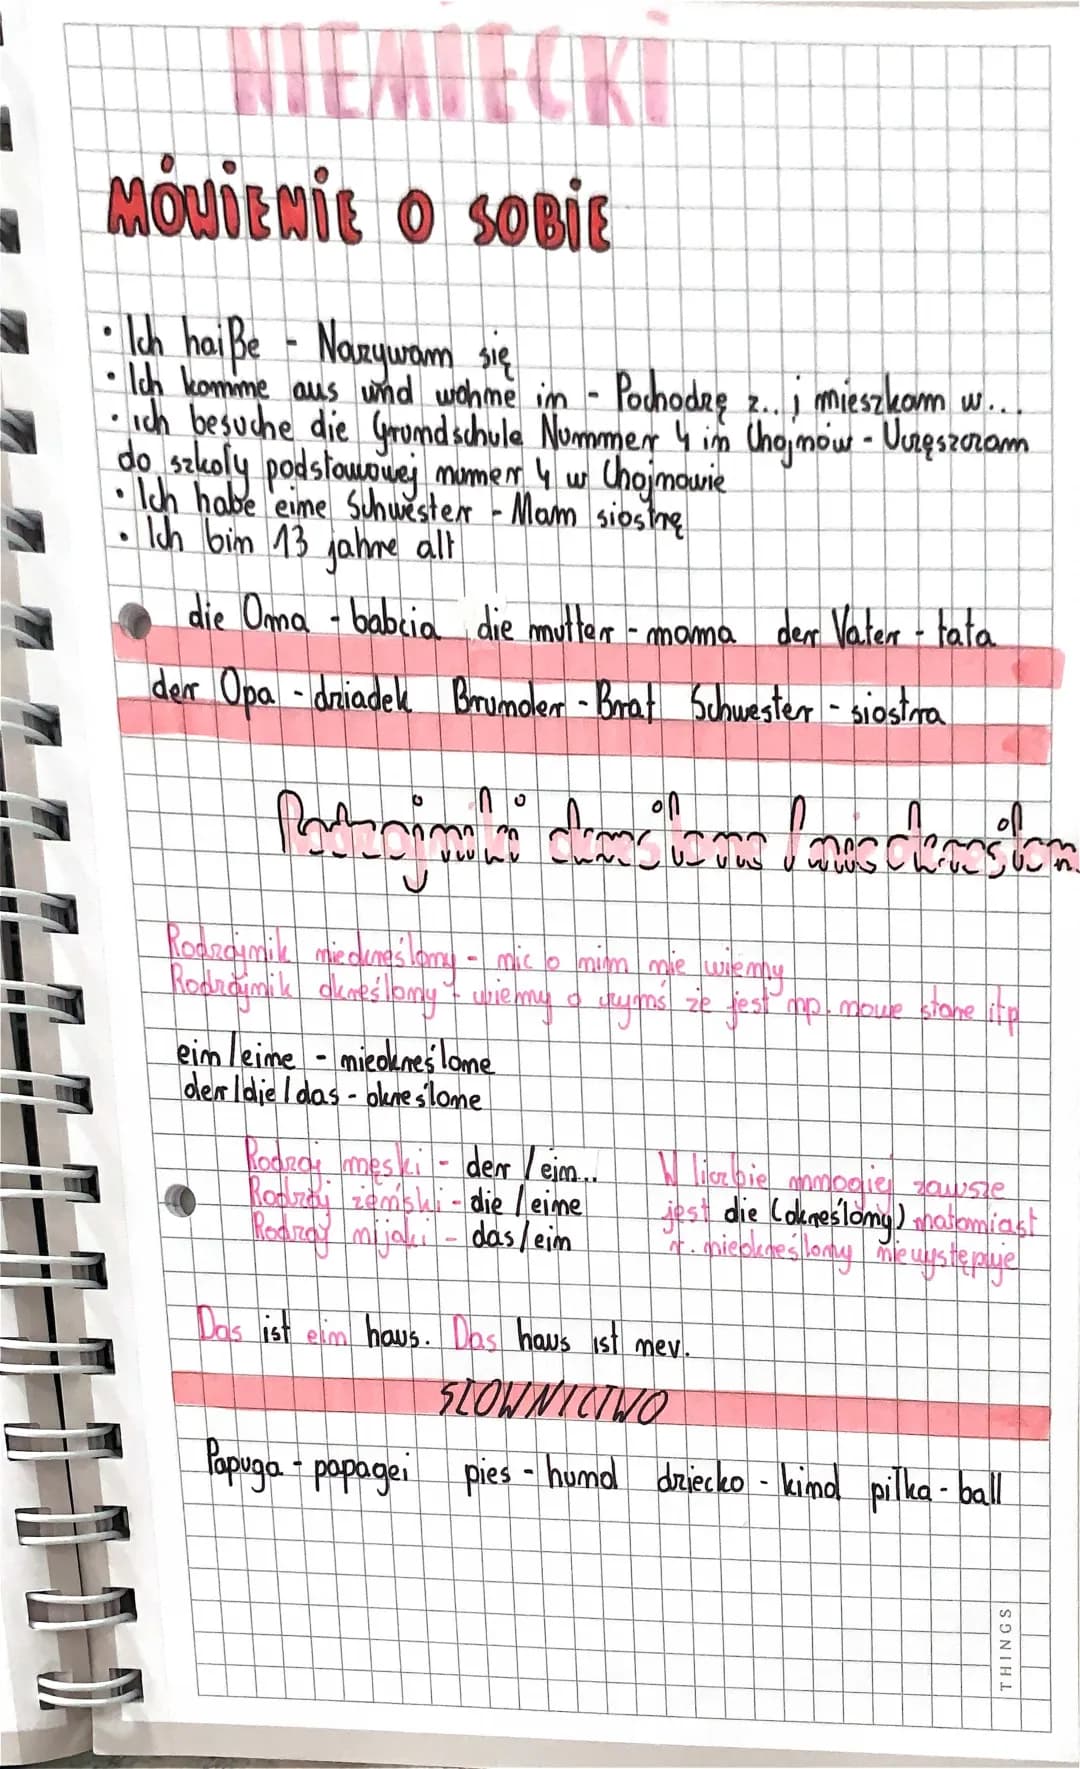 NIEMIECKI
MÓWIENIE O SOBIE
• Ich haiße - Nazywam się
• Ich komme aus und wohne in - Pochodzę z.. i mieszkam w...
• ich besuche die Grundschule Nummer 4 in Chojnów - Uczęszczam
do szkoły podstawowej numer 4 w Chojnowie
• Ich habe eine Schwester - Mam siostrę
• Ich bin 13 jahre alt
die Oma - babcia die mutter - mama der Vater - tata
der Opa - dziadek Brunder - Brat Schwester - siostra
Rodzajniki określone / nieokreślon
Rodzajnik nieokreślony - nic o nim nie wiemy
Rodzajnik określony - wiemy o czymś że jest np. nowe stare itp
ein/eine - nieokreślone
der/die/das - określone
Rodzaj męski - der / ein.. W liczbie mnogiej zawsze
Rodzaj żeński - die / eine jest die (określony) natomiast
Rodzaj nijaki - das/ein r. nieokreślony nie występuje
Das ist ein haus. Das haus ist neu.
SŁOWNICTWO
Papuga - papagei pies - hund dziecko - kind piłka - ball
THINGS